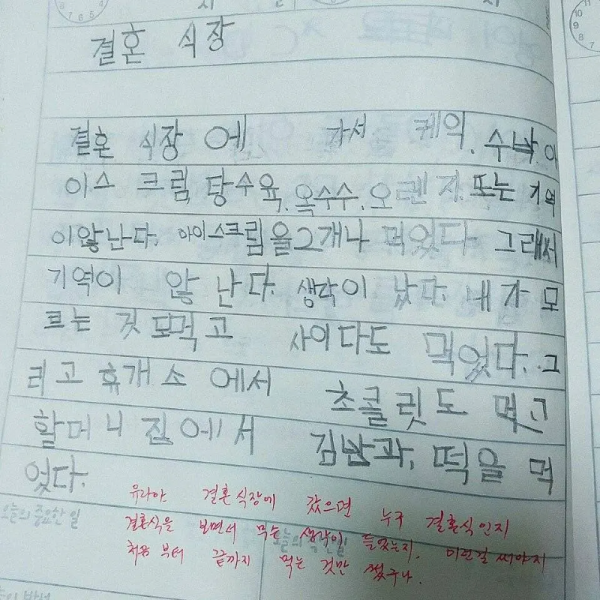 결혼 식장
결혼 식장 에 가서 케익. 수박 아
이스 크림, 탕수육. 옥수수. 오렌지. 또는 기역
이않난다. 아이스크림을2개나 먹었다. 그래서
기역이 않 난다. 생각이 났다. 내가 모
르는 것 도먹고 사이다도 먹었다. 그
리고 휴개소 에서 초콜릿도 먹고
할머니 집에서 김밥과, 떡을 먹
었다.
유라야 결혼식장에 갔으면 누구 결혼식인지
결혼식을 보면서 무슨 생각이 들었는지. 이런걸 써야지
처음 부터 끝까지 먹는 것만 썼구나.
오늘의 중요한 일